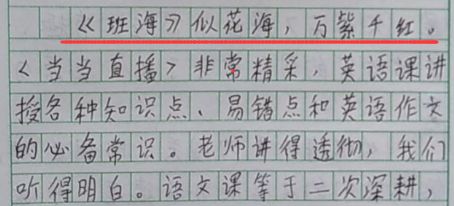 《班海》似花海，万紫千红。
<当当直播>非常精采，英语课讲
授各种知识点、易错点和英语作文
的必备常识。老师讲得透彻，我们
听得明白。语文课等于二次深耕，